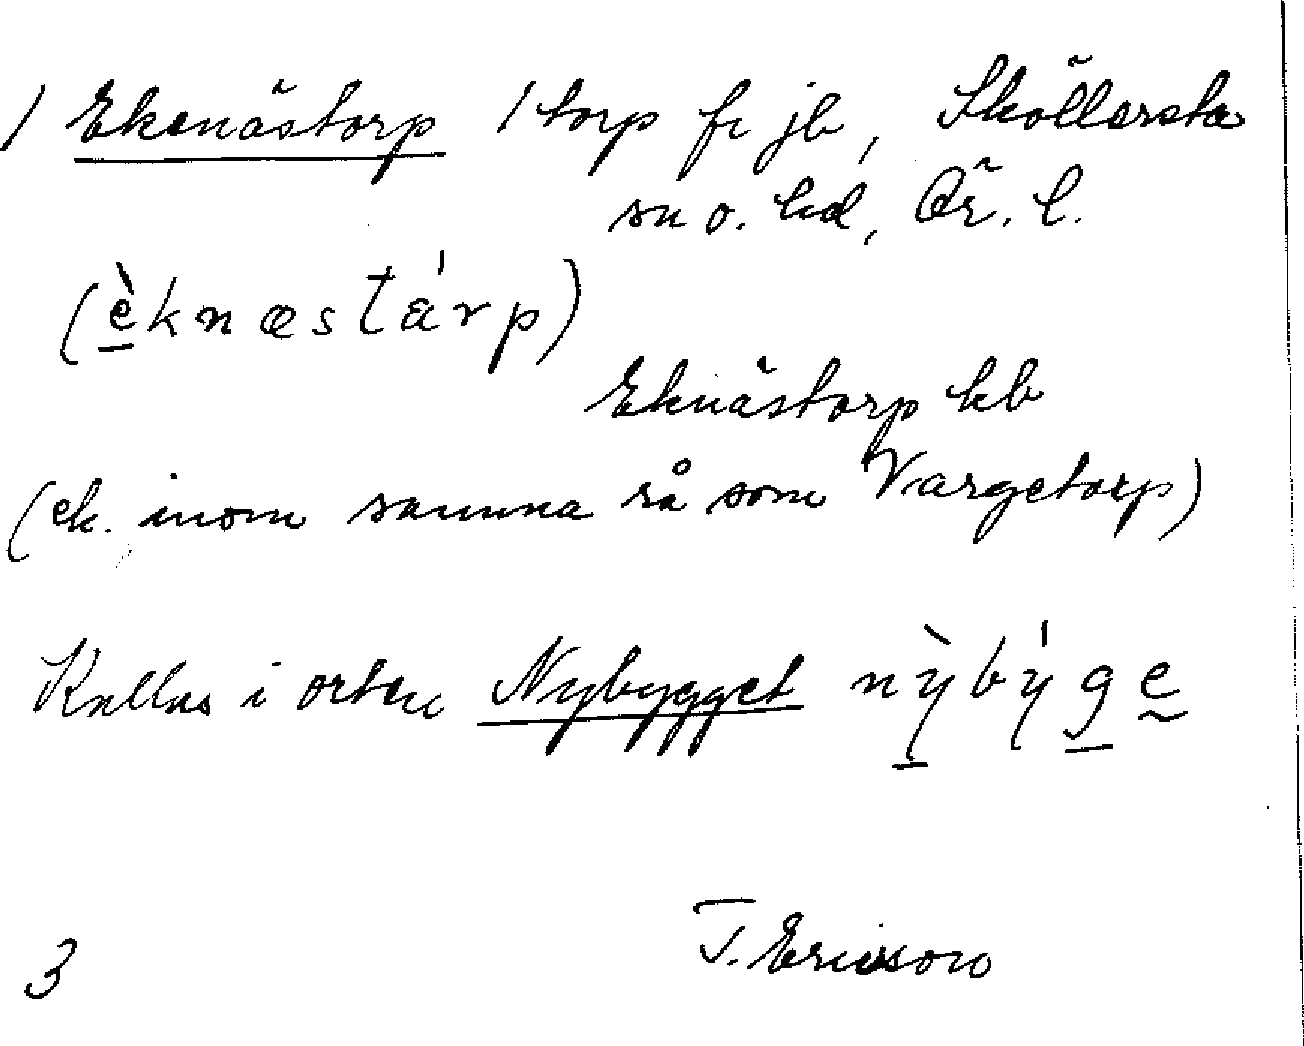 / Ekenästorp 1 torp fr jb, Sköllersta
sn o. hd, Ör. l.
(è̱knæstárp)
Eknästorp kb
(ek. inom samma rå som Vargetorp)
Kallas i orten Nybygget nỳ̱býg̱ḛ
3 T. Ericsson